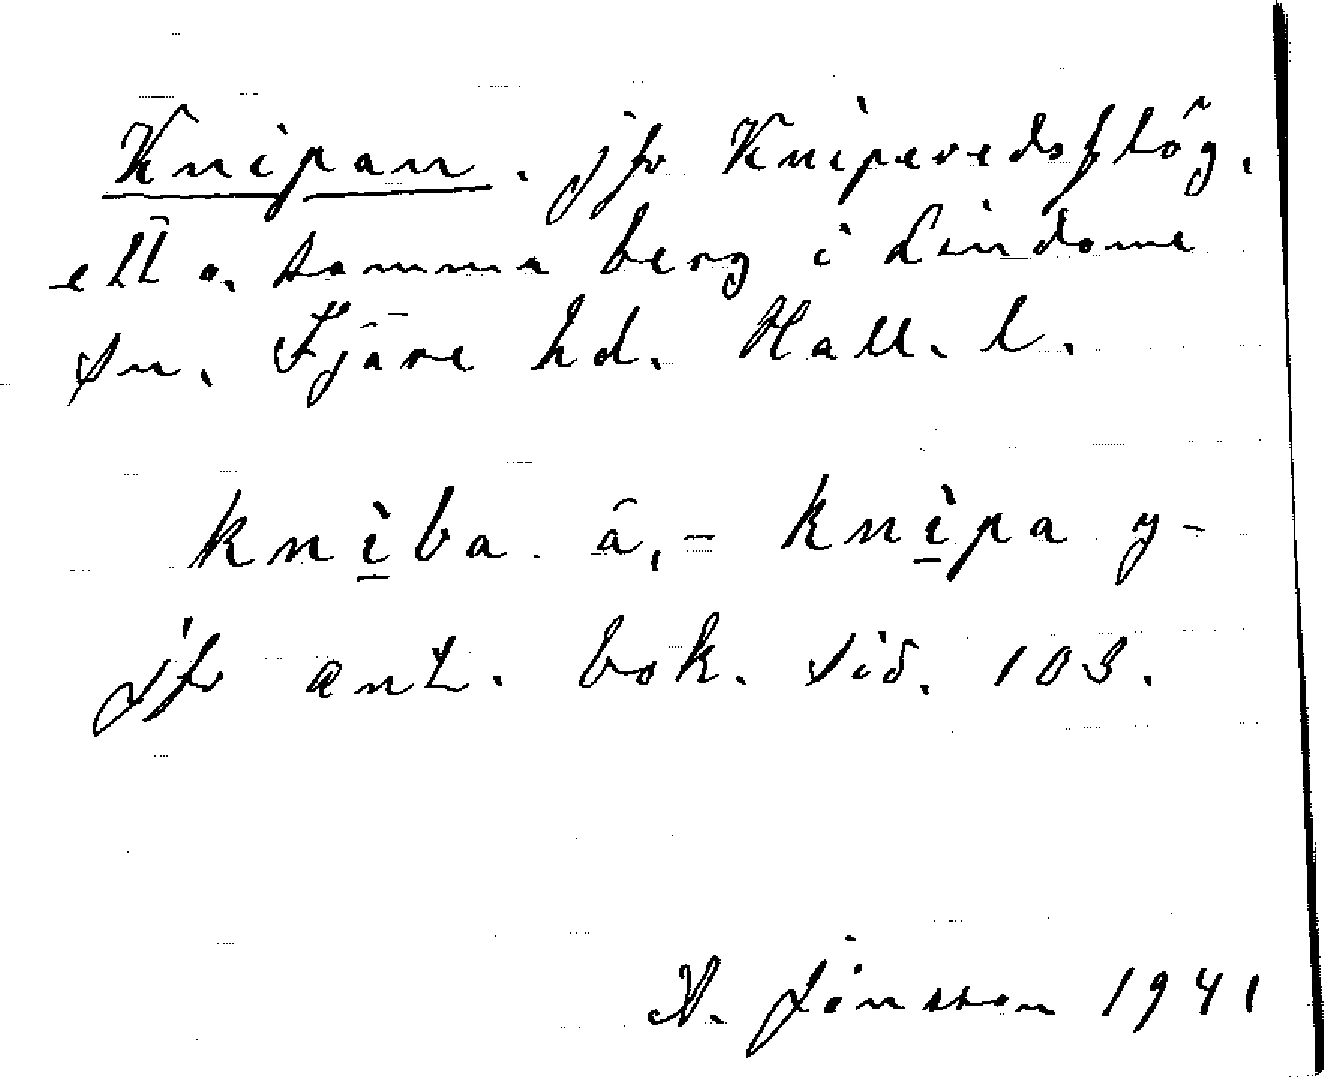 Knipan. jfr Kniperedsflög,
ett o. samma berg i Lindome
sn. Fjäre hd. Hall. l.
kniba ä, - knipa y -
jfr ant. bok. sid. 103.
A. Jönsson 1941